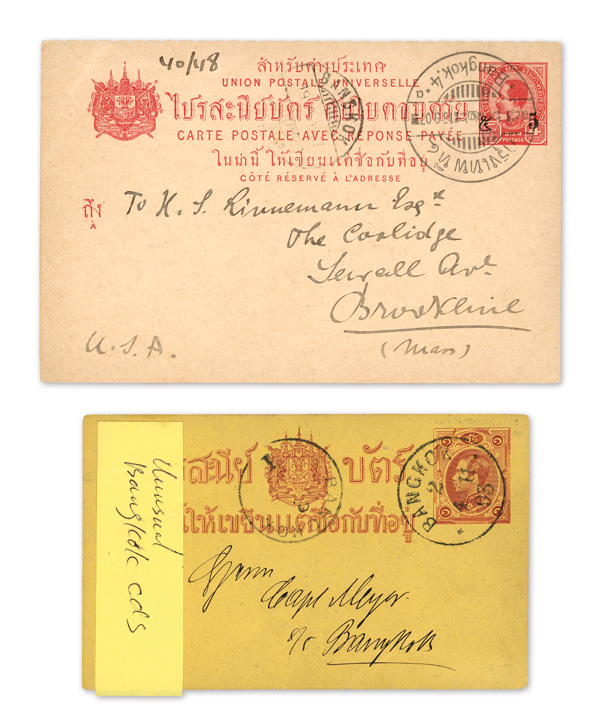 40/48
สำหรับต่างประเทศ
UNION POSTALE UNIVERSELLE
ไปรสะนียบัตร
CARTE POSTALE AVEC RÉPONSE PAYÉE
ในน่านี้ ให้เขียนแต่ชื่อกับที่อยู่
CÔTÉ RÉSERVÉ À L'ADRESSE
BANGKOK
Bangkok.4.
5
POSTAGE
ถึง
A
To H. S. Rinnemann Esqre
The Coolidge
Sewall Ave
Brookline
(Mass)
U.S.A.
Unusual
Bangkok cds
บัตร์
BANGKOK
1
BANGKOK
2
ให้เขียนแต่ชื่อกับที่อยู่
Herrn
Capt Meyer
c/o Bangkok